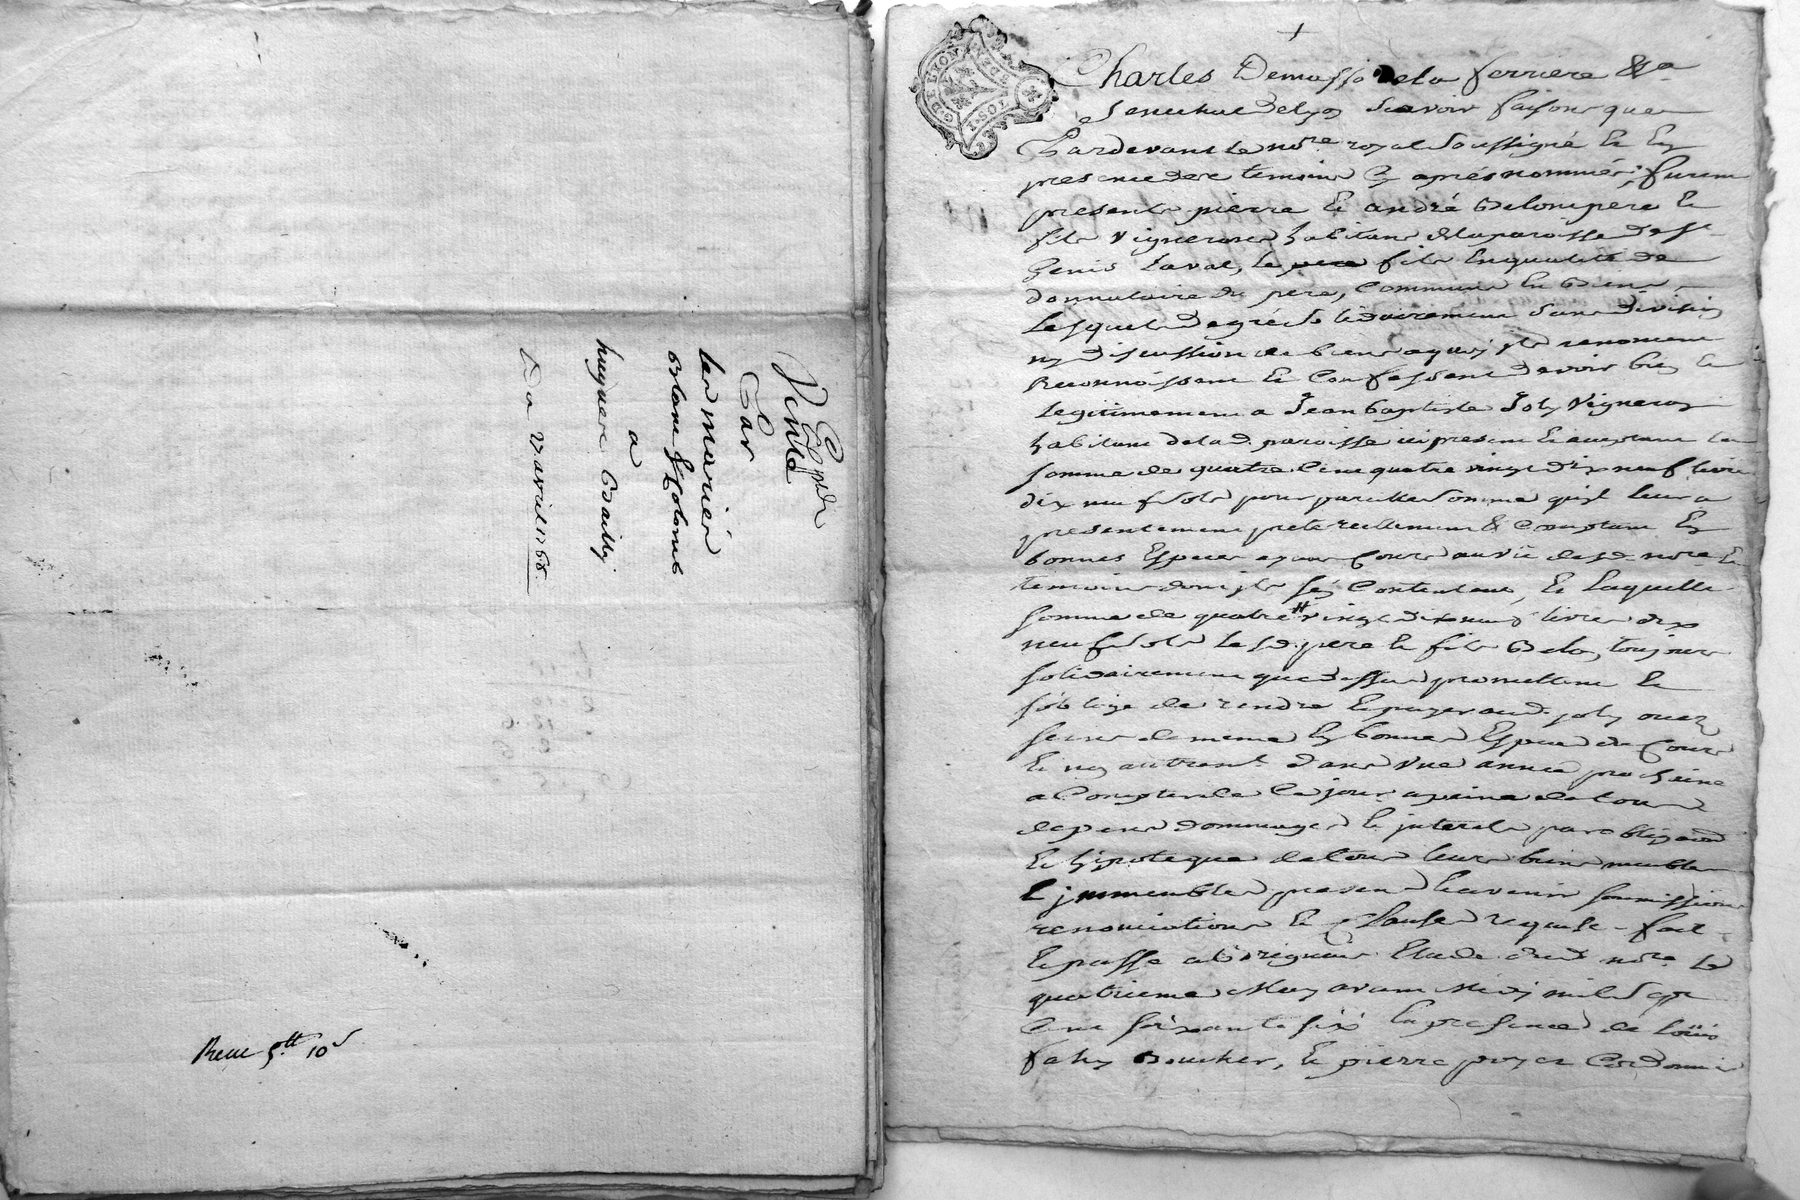 Expde
Vente
Par
les mariés
&
a
huguere Bailly
Du
avril 1766
Receu 5tt 10s
G. DE LYON
1. SOL
+
Charles Demasso Dela ferriere &a
Senechal Delyon Scavoir faisons que
Pardevant le nore. royal Soussigné Et En
presence des temoins Cy aprés nommés, furent
presents pierre Et andré pere Et
fils Vignerons habitans delaparoisse De St.
Genis Laval, le fils Enqualité de
donnataire du pere, Communs En Biens
Lesquels degré Solidairement Sans Division
ny discussion de biens aquoy ils renoncent
Reconnoissent Et Confessent devoir bien Et
Legitimement a Jean baptiste Joly Vigneron
habitant delad. paroisse icy present Et acceptant la
somme de quatre Cent quatre vingt Dix neuf livres
dix neuf sols pour pareille Somme quil leur a
presentement preté reellement & Comptant En
bonnes Especes ayant Cours au vû dud. nore. Et
temoins dont ils Contentent, Et Laquelle
somme de quatre # vingt dix neuf livres dix
neuf sols lesd. pere Et fils toujours
solidairement que dessus promettent Et
s'oblige de rendre Et payer aud. Joly ou aux
siens de meme En bonnes Espece de Cours
Et non autrement Dans Une année prochaine
a Compter de Ce jour apeine de tous
depens dommages Et interets par obligation
Et hipoteque de tous leurs biens meubles
Et immeubles presents Et avenir soumissions
renonciations Et Clauses requise - fait
Et passé Etude dud. nore. Le
quatrieme May avant Midy mil Sept
Cent soixante six En presence de Loüis
faby Boucher, Et pierre Cordonnier